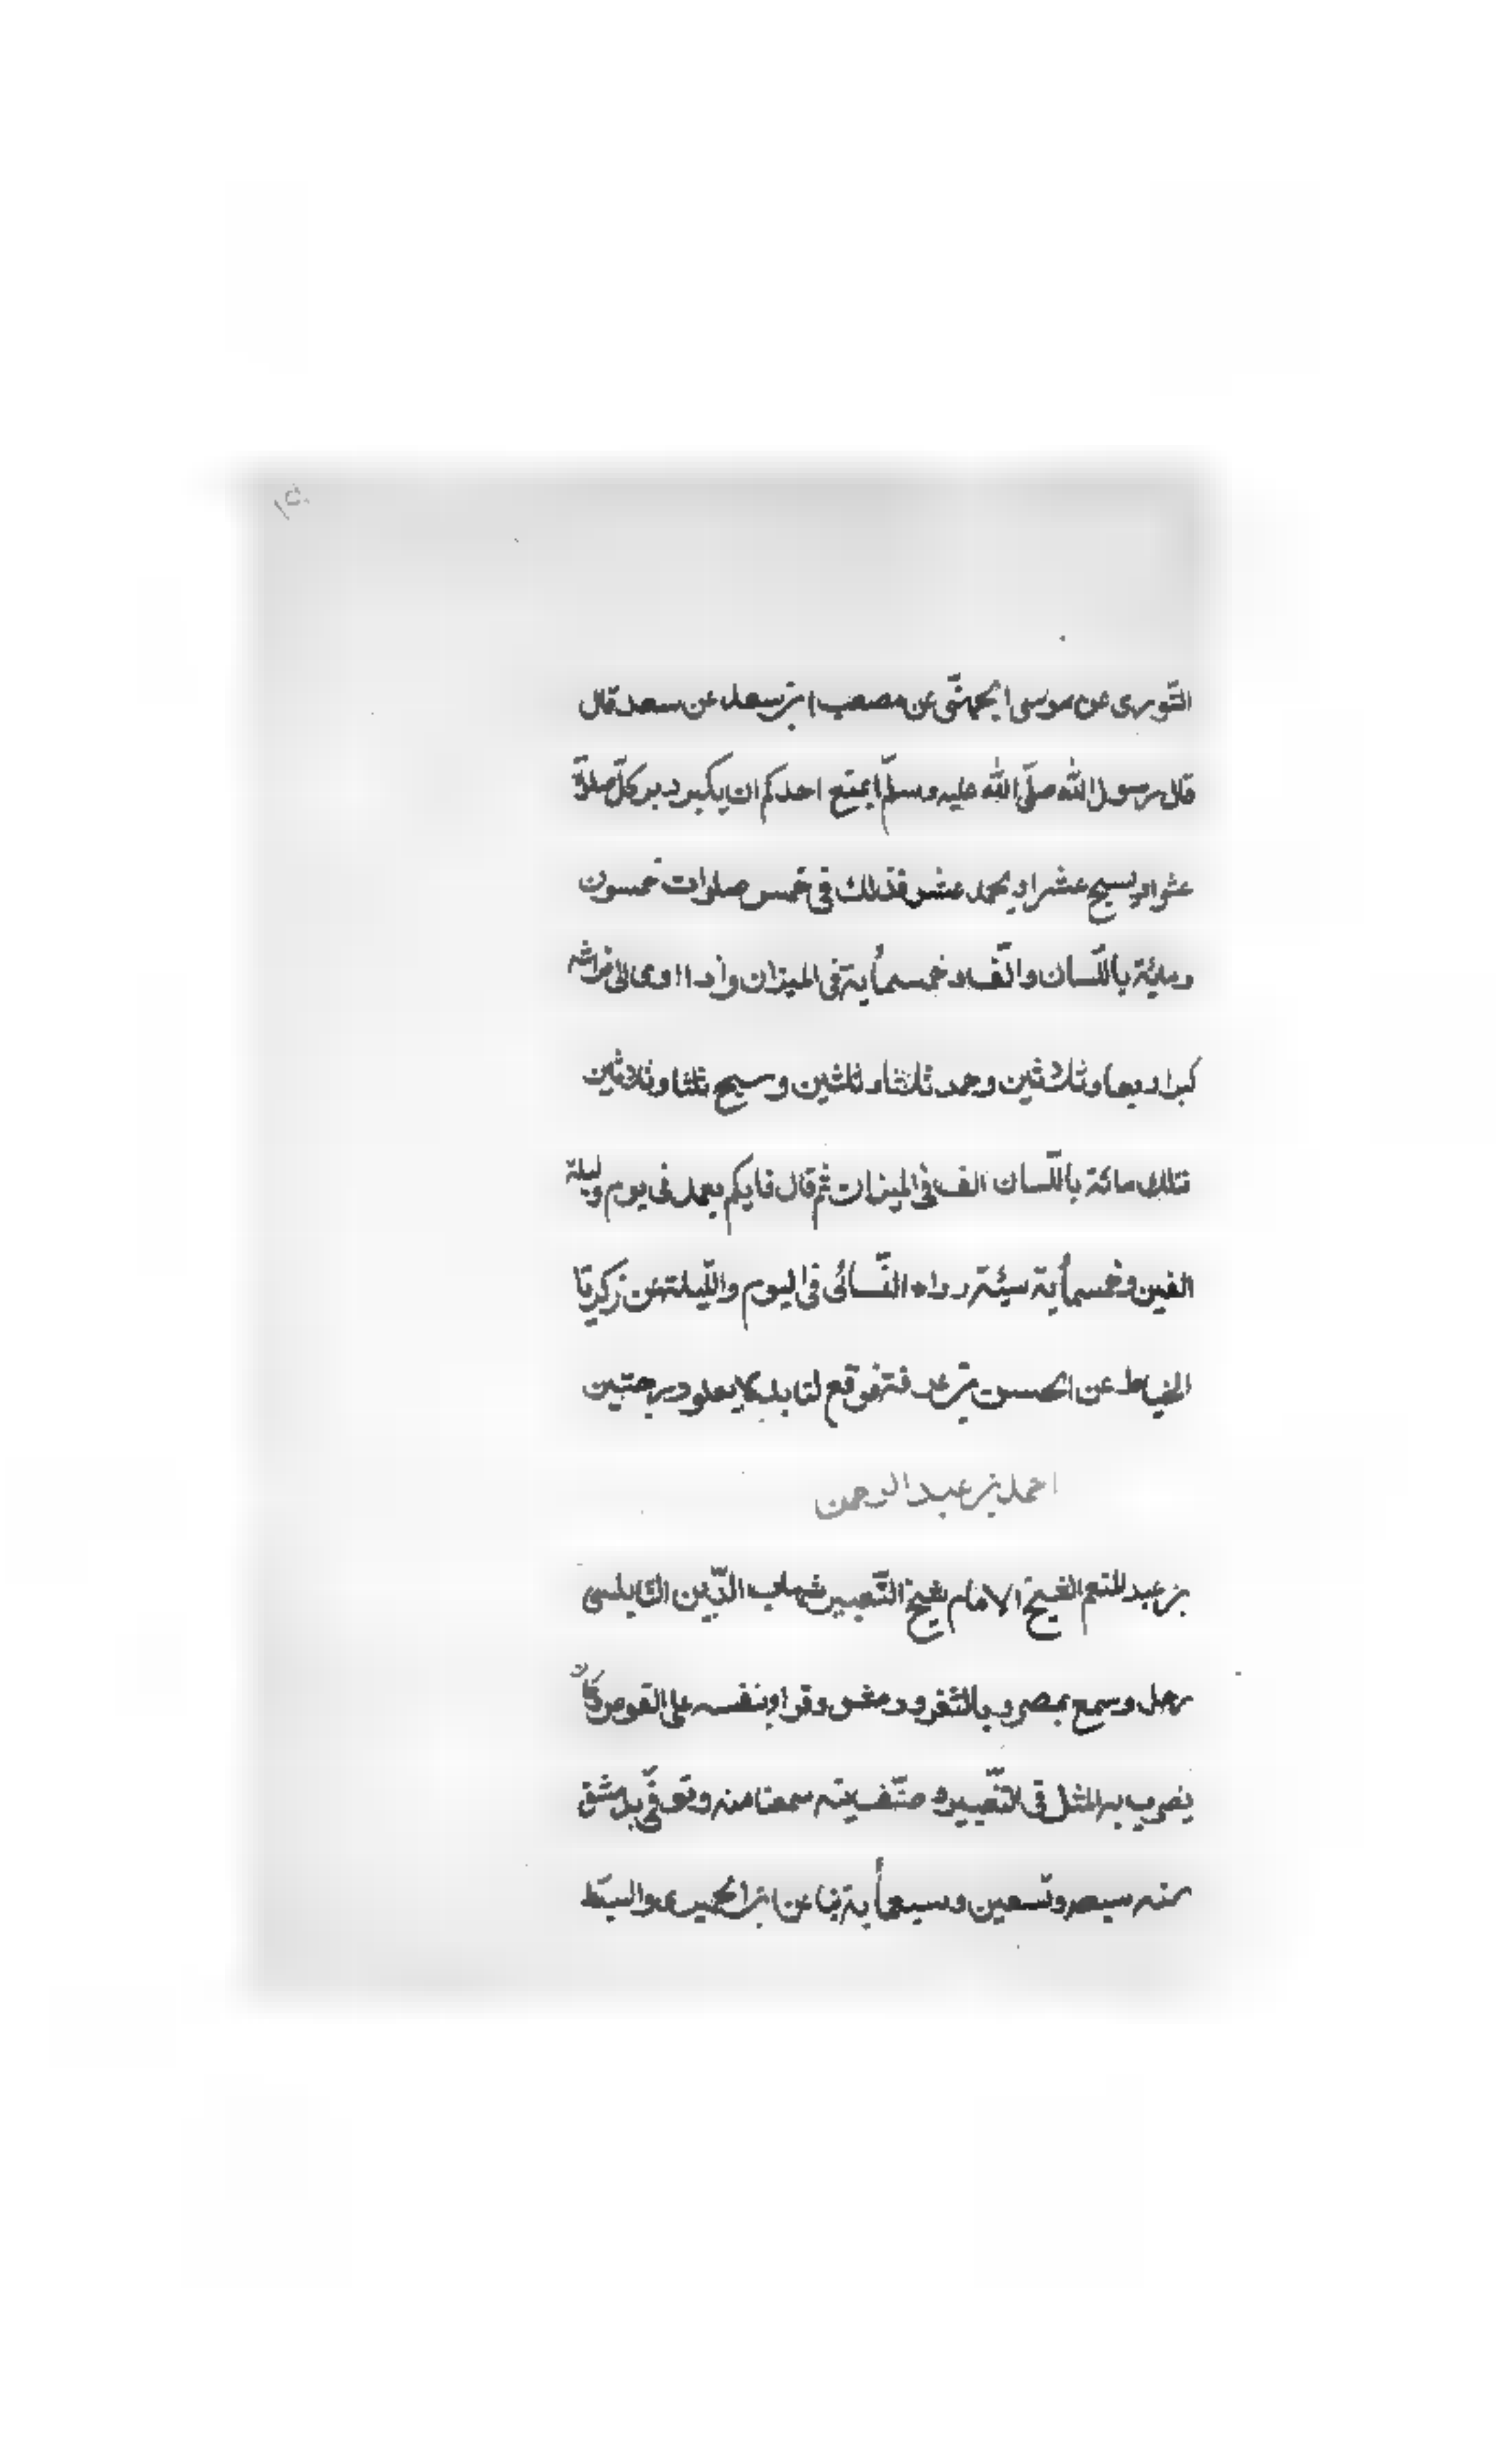 الثوري عن موسى الجهني عن مصعب بن سعد عن سعد قال
قال رسول الله صلّى الله عليه وسلّم ايمنع احدكم ان يكبر دبر كلّ صلوة
عشرا ويسبح عشرا ويحمد عشر فذلك في خمس صلوات خمسون
ومائة باللّسان والف وخمسمأية في الميزان واذا اوى الى فراشه
كبر اربعا وثلاثين وحمد ثلاثا وثلثين وسبح ثلثا وثلاثين
فتلك مائة باللّسان الف في الميزان ثم قال فايكم يعمل في يوم وليلة
الفين وخمسمأية سيئة رواه النّسائى في اليوم واللّيلة عن زكريّا
الخياط عن الحسن بن عرفة فوقع لنا بدلا يعلو درجتين
احمد بن عبد الرحمن
بن عبد المنعم الشيخ الامام شيخ التّعبير شهاب الدّين النابلسى
رحل وسمع بمصر وبالثغر ودمشق وقرا بنفسه على القوص كان
يضرب به المثل في التّعبير صنّف فيه سمعنا منه وتوفّي بدمشق
سنه سبع وتسعين وسبعمأية بنا عن ابن الحميرى والسبط